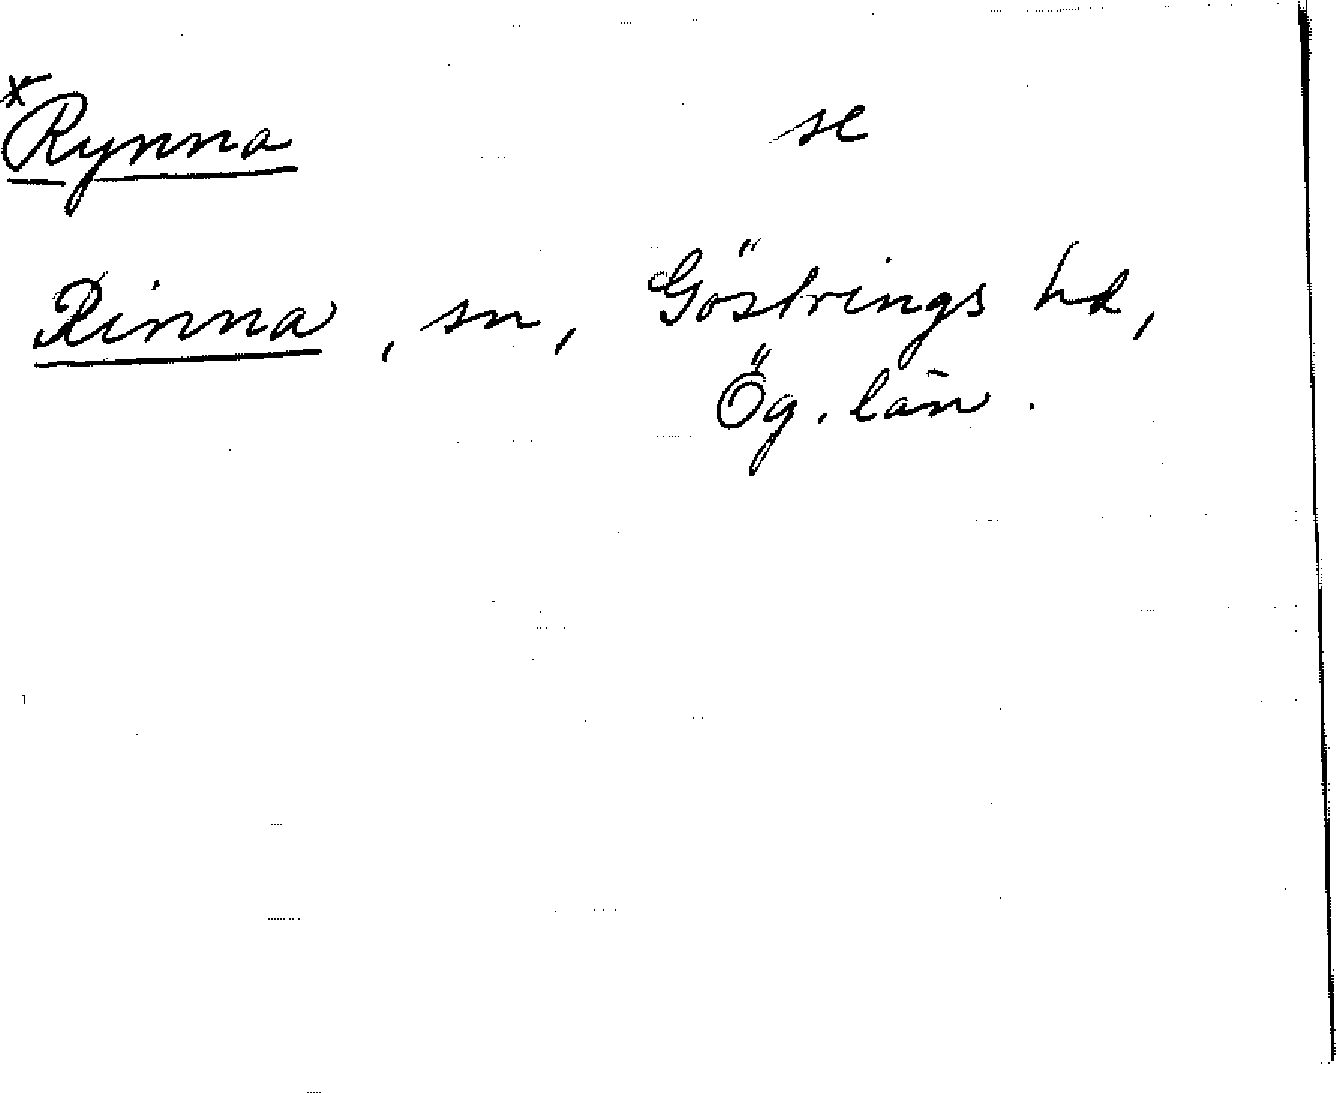 *Rynna se
Rinna, sn, Göstrings hd,
Ög. län.